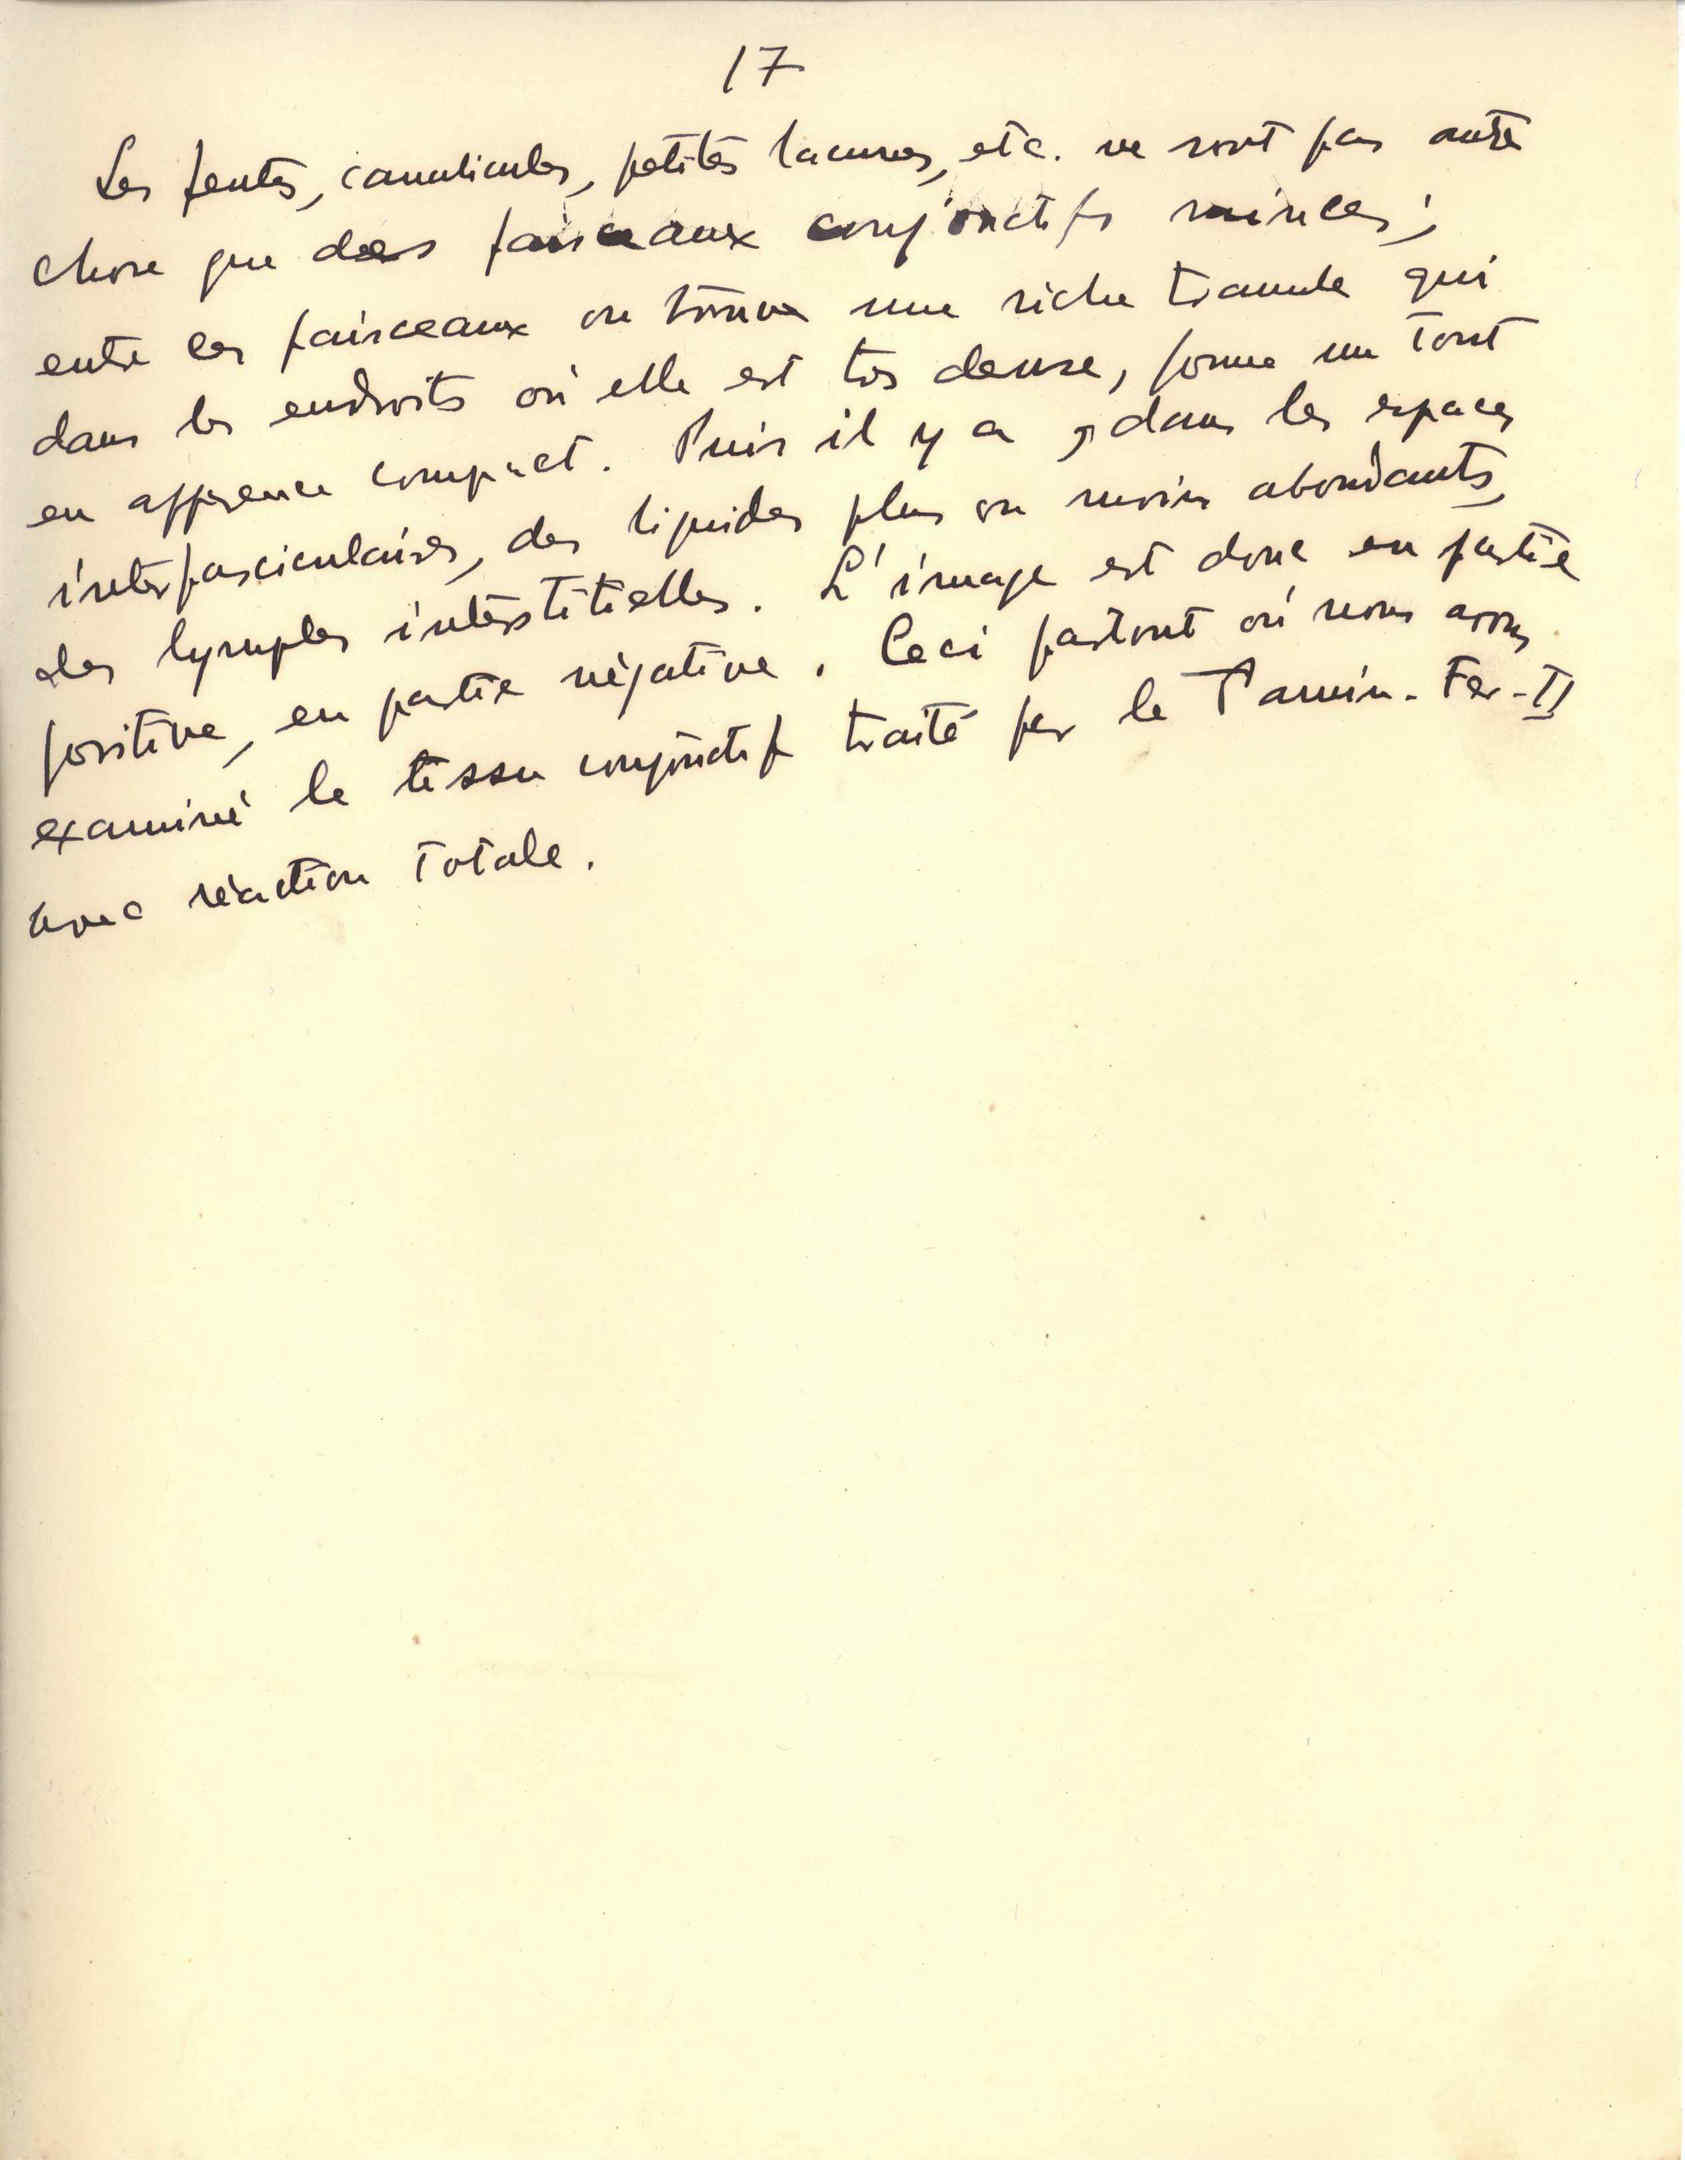 17
Les fentes, canalicules, petites lacunes, etc. ne sont pas autre
chose que des faisceaux conjonctifs minces;
entre ces faisceaux on trouve une riche tramule qui
dans les endroits où elle est très dense, forme un tout
en apparence compact. Puis il y a, dans les espaces
interfasciculaires, des liquides plus ou moins abondants,
des lymphes interstitielles. L'image est donc en partie
positive, en partie négative. Ceci partout où nous avons
examiné le tissu conjonctif traité par le Tannin-Fer-II
avec réaction totale.